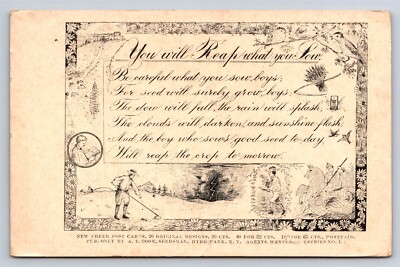 You will Reap what you Sow.
Be careful what you sow, boys;
For seed will surely grow, boys;
The dew will fall, the rain will splash,
The clouds will darken, and sunshine flash,
And the boy who sows good seed to-day
Will reap the crop to-morrow.
NEW CHEER POST CARDS, 20 ORIGINAL DESIGNS, 20 CTS. 40 FOR 35 CTS, 100 FOR 65 CTS, POSTPAID.
PUB. ONLY BY A. T. COOK, SEEDSMAN, HYDE PARK, N. Y. AGENTS WANTED. (SERIES NO. 1.)